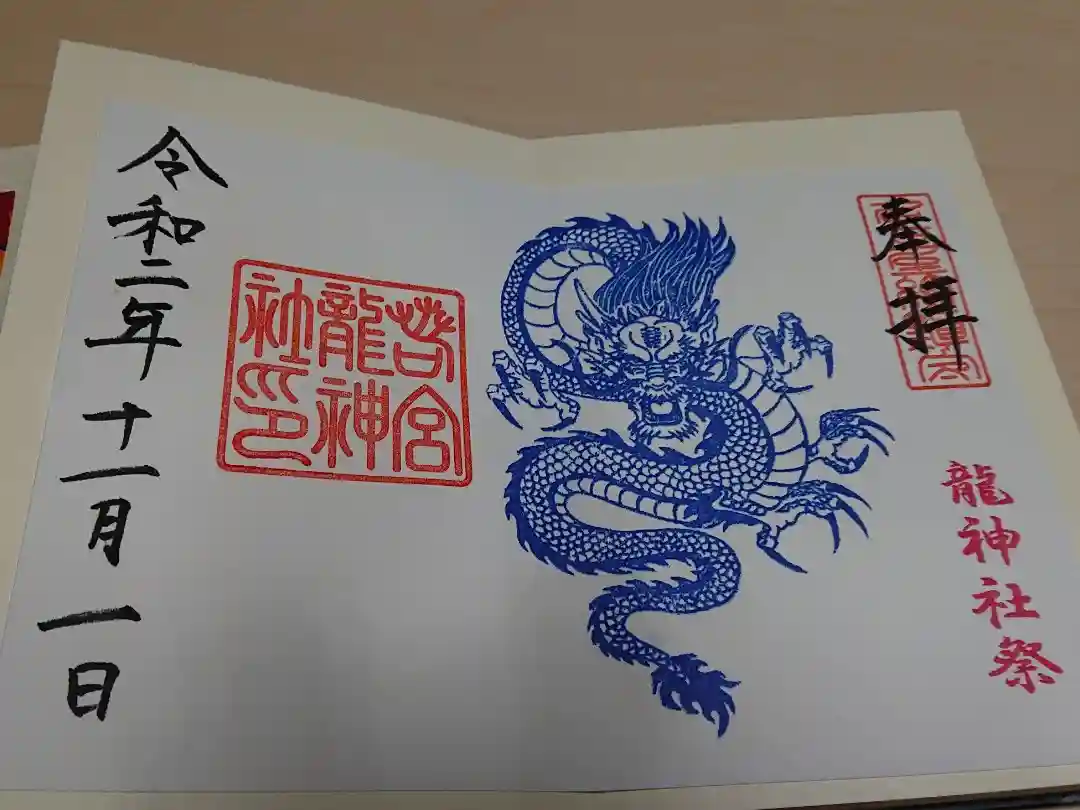 奉拝
龍神社祭
若宮
龍神
社印
令和二年十一月一日